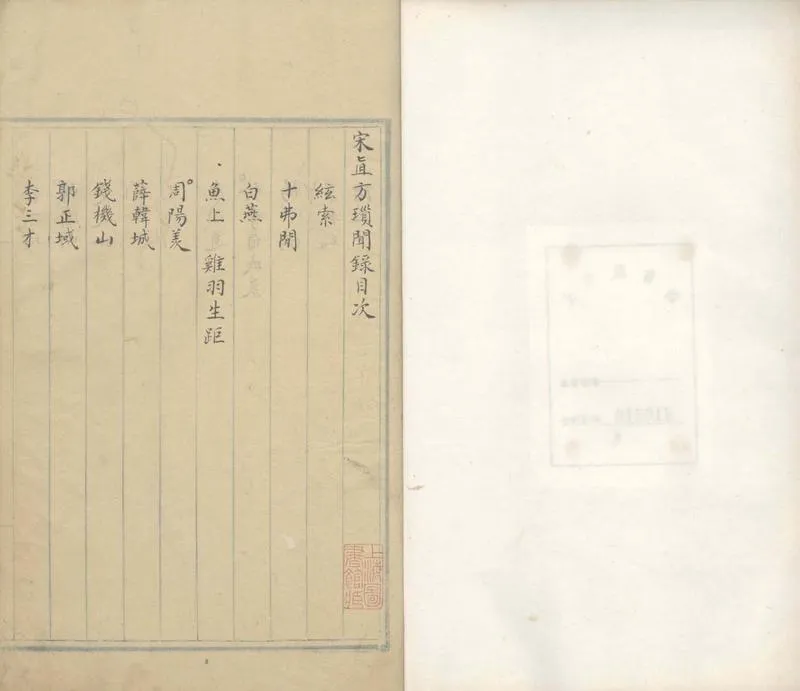 宋直方瑣聞錄目次
絃索
十弗閒
白燕
魚上 雞羽生距
周陽羨
薛韓城
錢機山
郭正域
李三才
上海圖書館藏